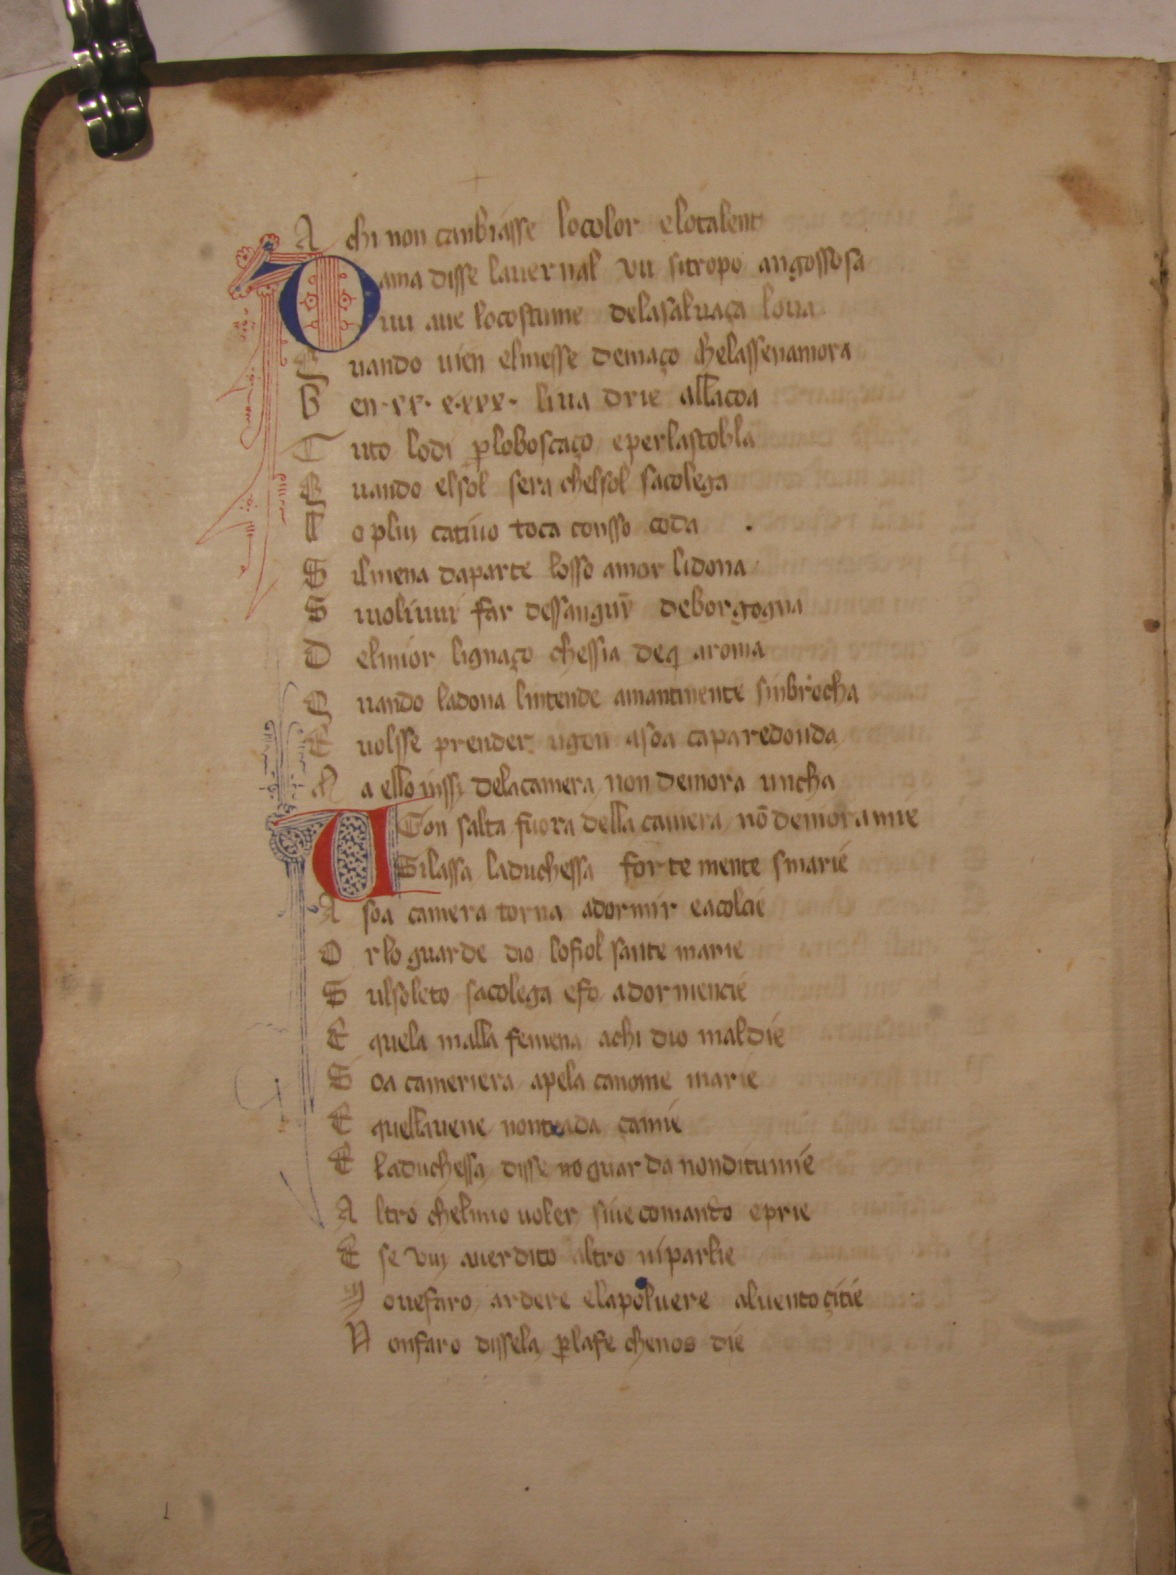 A chi non canbiasse lo color e lo talent
Dama disse lauernal vu si tropo angossosa
Vuu aue lo costume dela saluaça loua
Quando uien el messe de maço che la sse namora
Ben ·xx· e·xxx· li ua drie alla coa
Tuto lo di ꝑ lo boscaço e per la stobla
Quando el sol sera chel sol sacolega
Lo plui catiuo toca consso coda
Sil mena da parte losso amor li dona
S uoliuui far des sanguȳ de borgogna
Del mior lignaço che ssia de q̄ a roma
Quando la dona lintende amantinente sinbrōcha
E uolsse prender ugon a soa capa redonda
Ma ello inssi dela camera non demora uncha
UGon salta fuora della camera nō demora mie
Si lassa la duchessa forte mente smarie
A soa camera torna a dormir e acolcie
Or lo guarde dio lo fiol sante marie
Sul so leto sacolega e fo adormencie
E quela malla femena a chi dio maldie
Soa cameriera apela ca nome marie
E quella uene non tada çamie
E la duchessa disse no guarda non ditu mie
Altro chel mio uoler siue comando e prie
E se vuy auer dito altro ni parlie
Y oue faro ardere e la poluere al uento çitie
Non faro dissela ꝑ la fe che nos die